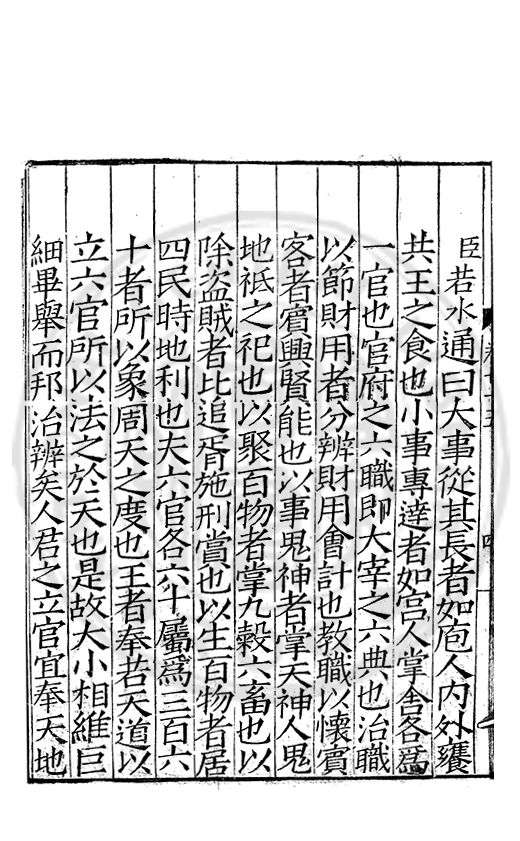 臣若水通曰大事從其長者如庖人內外饔
共王之食也小事專達者如宮人掌舍各爲
一官也官府之六職即大宰之六典也治職
以節財用者分辨財用會計也教職以懷賓
客者賓興賢能也以事鬼神者掌天神人鬼
地祇之祀也以聚百物者掌九穀六畜也以
除盜賊者比追胥施刑賞也以生百物者居
四民時地利也夫六官各六十屬爲三百六
十者所以象周天之度也王者奉若天道以
立六官所以法之於天也是故大小相維巨
細畢舉而邦治辨矣人君之立官宜奉天地